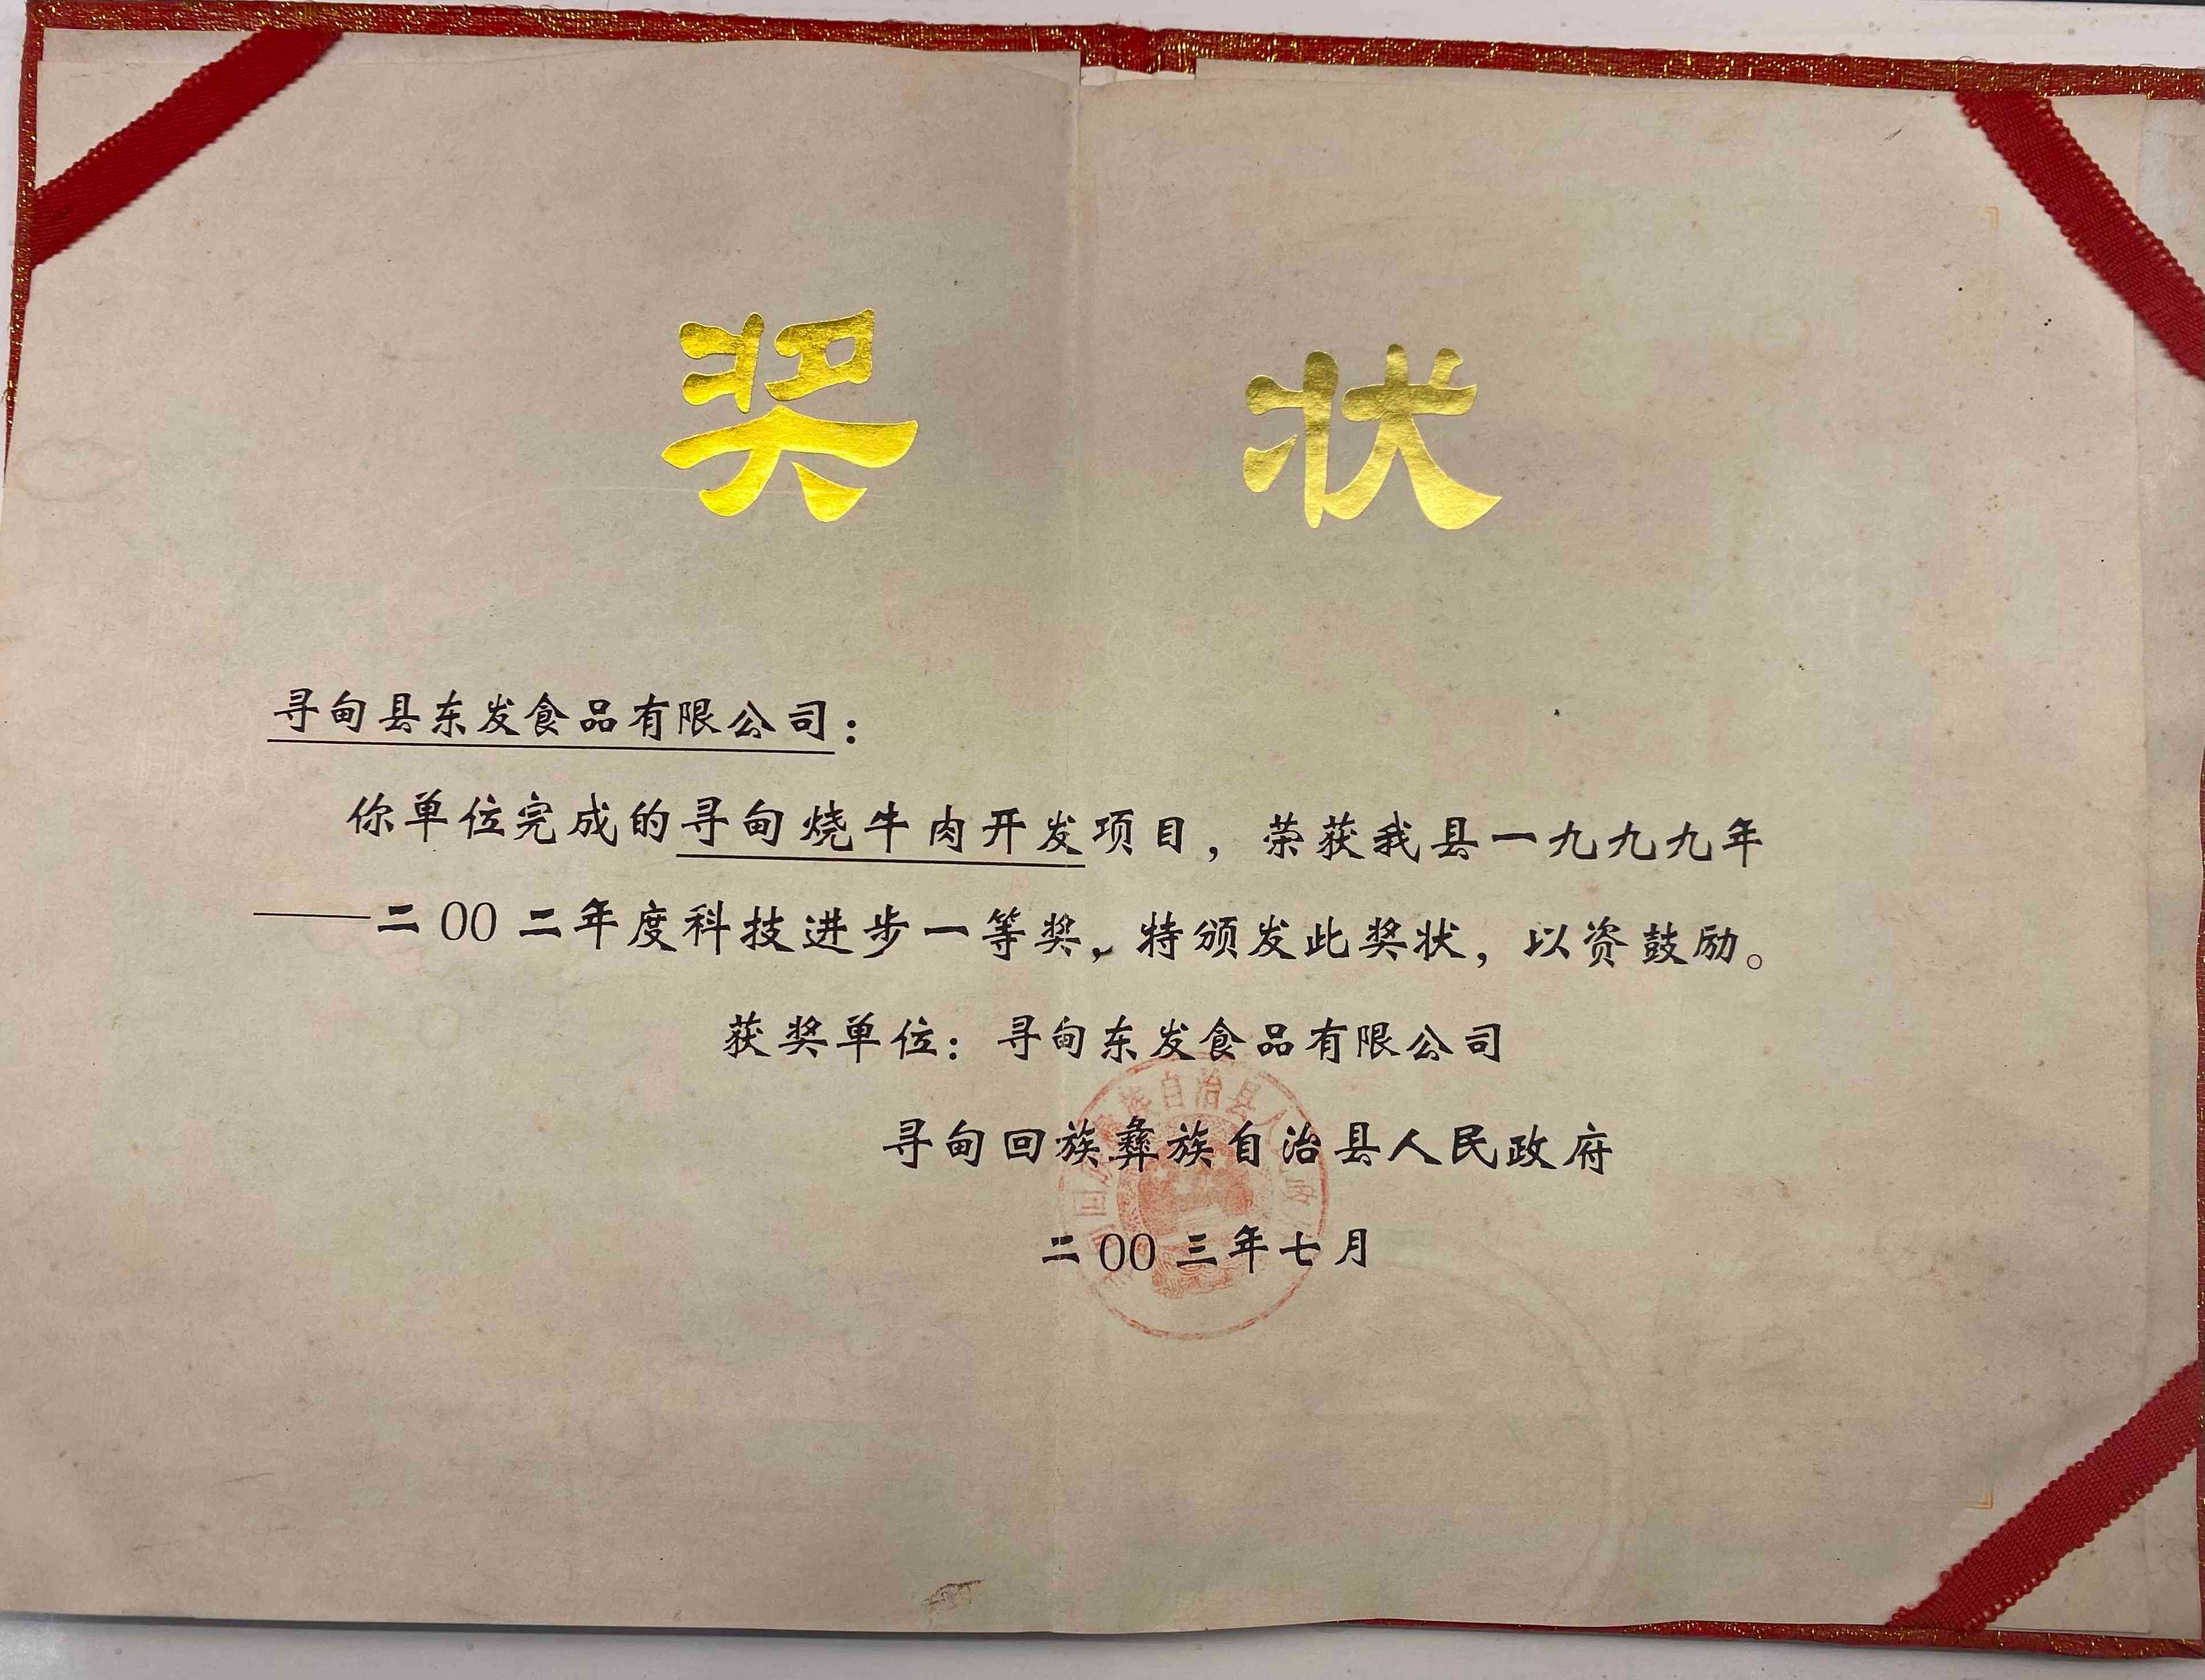 奖 状
寻甸县东发食品有限公司：
你单位完成的寻甸烧牛肉开发项目，荣获我县一九九九年
——二00二年度科技进步一等奖，特颁发此奖状，以资鼓励。
获奖单位：寻甸东发食品有限公司
寻甸回族彝族自治县人民政府
二00三年七月
回族自治县人政